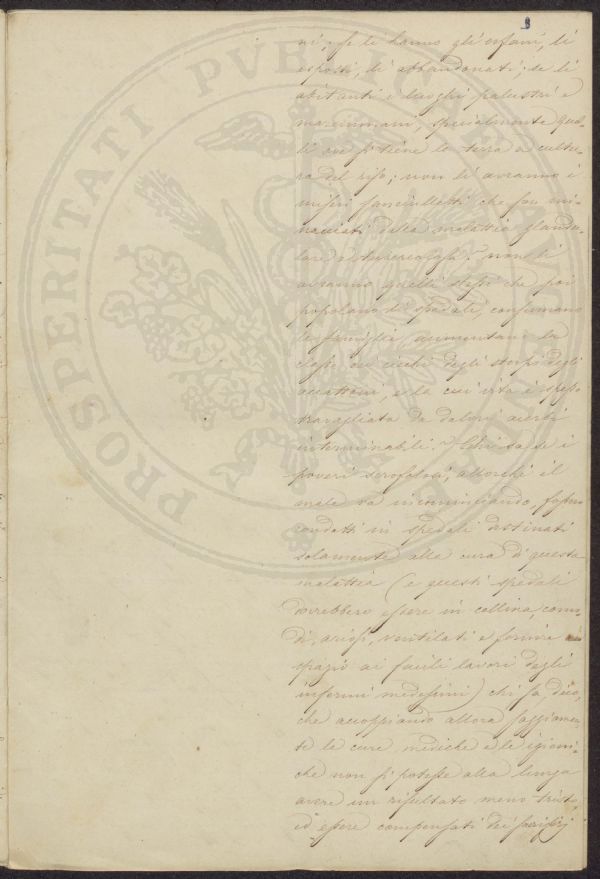 ni; se li hanno gli orfani, li
esposti, li abbandonati; se li
abitanti i luoghi palustri e
maremmani, specialmente quel-
li ove si tiene la terra a cultu-
ra del riso; non li avranno i
miseri fanciulletti che son mi-
nacciati dalla malattia glandu-
lare o tubercolosa? non li
avranno quelli stessi che poi
popolano li spedali, consumano
le famiglie, aumentan la
classe dei ciechi degli storpi degli
accattoni, e la cui vita è spesso
travagliata da dolori acerbi
interminabili. Chi sa se i
poveri scrofolosi, allorchè il
male va incominciando, fosser
condotti in spedali destinati
solamente alla cura di questa
malattia (e questi spedali
dovrebbero essere in collina, como-
di, ariosi, ventilati e fornire
spazio ai facili lavori degli
infermi medesimi) chi sa, dico,
che accoppiando allora saggiamen-
te le cure mediche e le igieni-
che non si potesse alla lunga
avere un risultato meno tristo,
ed essere compensati dei sacrifizj
PROSPERITATI PVBLICAE